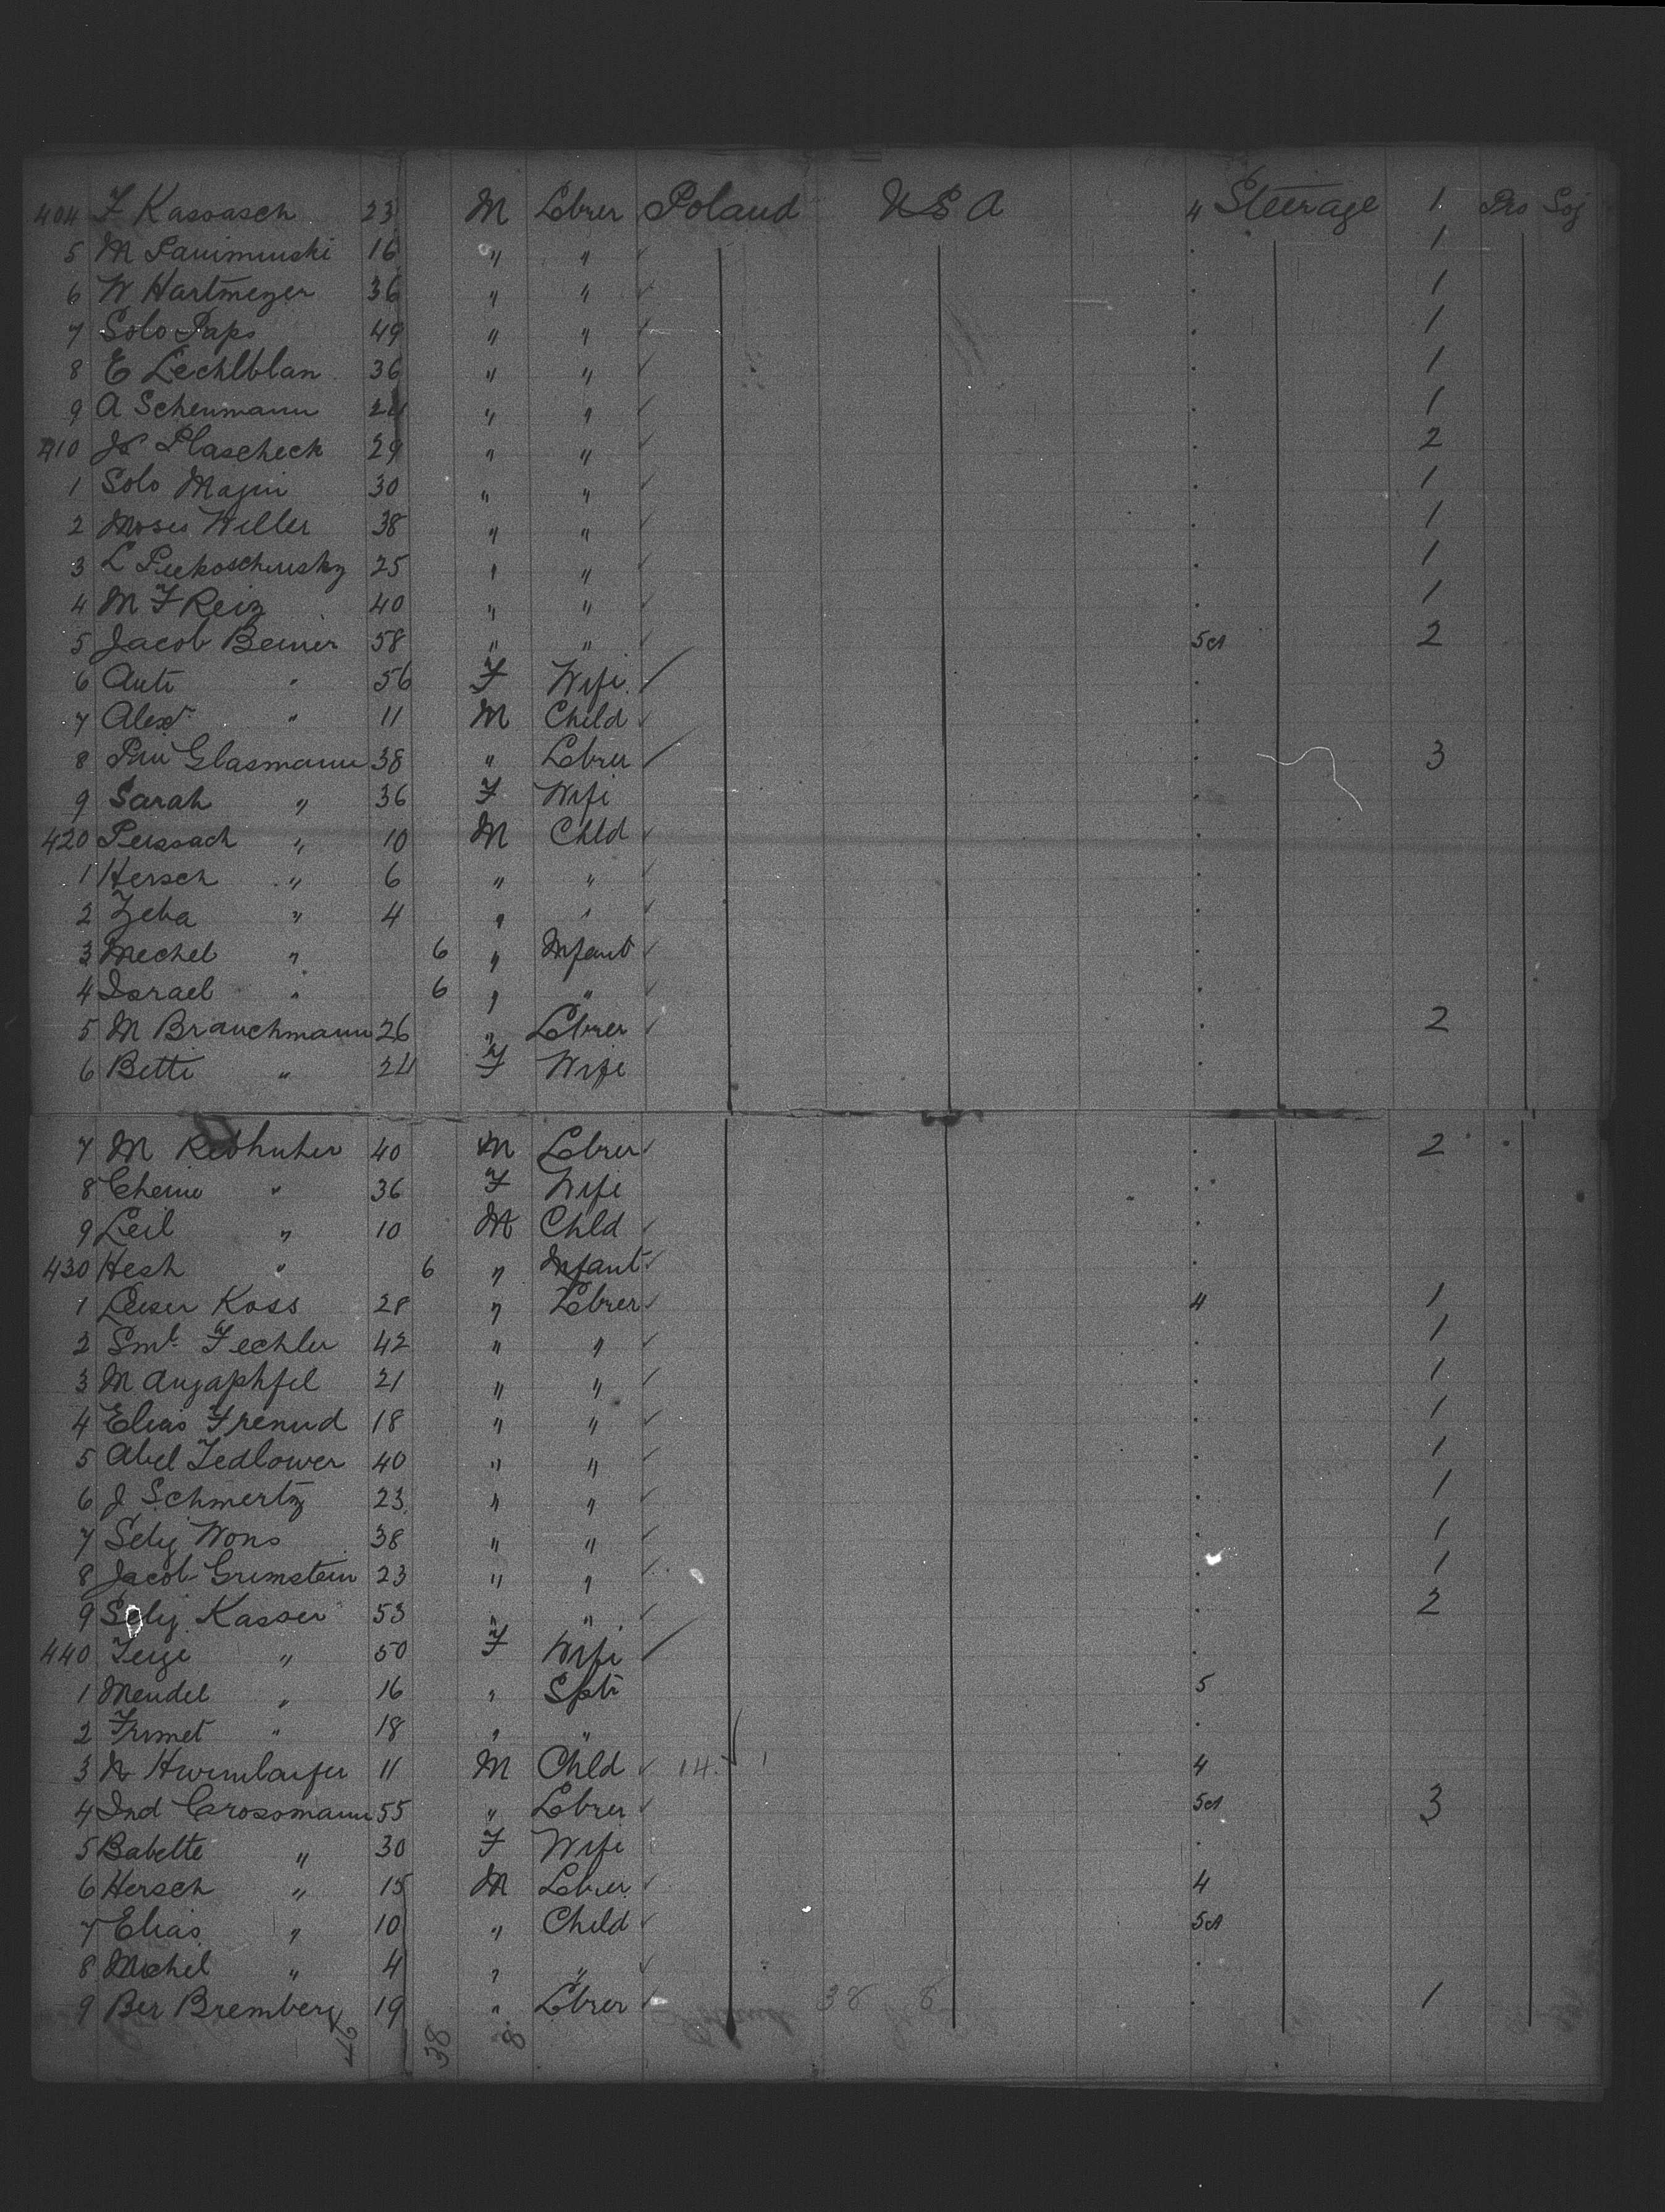 404 F Kassasch 23 M Lbrer Poland U S A 4 Steerage 1 Pro Soj
5 M Panimunski 16 " " 1
6 W Hartmeyer 36 " " 1
7 Solo Paps 49 " " 1
8 E Lechlblan 36 " " 1
9 A Scheumann 24 " " 1
410 Js Plascheck 29 " " 2
1 Solo Majin 30 " " 1
2 Moses Willer 38 " " 1
3 L 25 " " 1
4 M F Reiz 40 " " 1
5 Jacob Beiner 58 " " 5A 2
6 Anti " 56 F Wife
7 Alexr " 11 M Child
8 Glasmann 38 " Lbrer 3
9 Sarah " 36 F Wife
420 Perssach " 10 M Chld
1 Hersch " 6 " "
2 Zeba " 4 " "
3 Mechel " 6 " Infant
4 Israel " 6 " "
5 M Brauchmann 26 " Lbrer 2
6 Betti " 24 F Wife
7 M Rebhuher 40 M Lbrer 2
8 Cheine " 36 F Wife
9 Leil " 10 M Chld
430 Hesh " 6 " Infant
1 Leiser Koss 28 " Lbrer 4 1
2 Sml Fechler 42 " " 1
3 M Angaphfel 21 " " 1
4 Elias Freund 18 " " 1
5 Abel Tedlower 40 " " 1
6 J Schmertz 23 " " 1
7 Selig Wons 38 " " 1
8 Jacob Grimstein 23 " " 1
9 Selig Kasser 53 " " 2
440 Feige " 50 F Wife
1 Mendel " 16 " Spstr 5
2 Frimet " 18 " "
3 11 M Chld 14 4
4 Ind Crossmann 55 " Lbrer 5A 3
5 Babette " 30 F Wife
6 Hersch " 15 M Lbrer 4
7 Elias " 10 " Child 5A
8 Michel " 4 " "
9 Ber Bremberg 19 " Lbrer 38 8 1
46 38 8